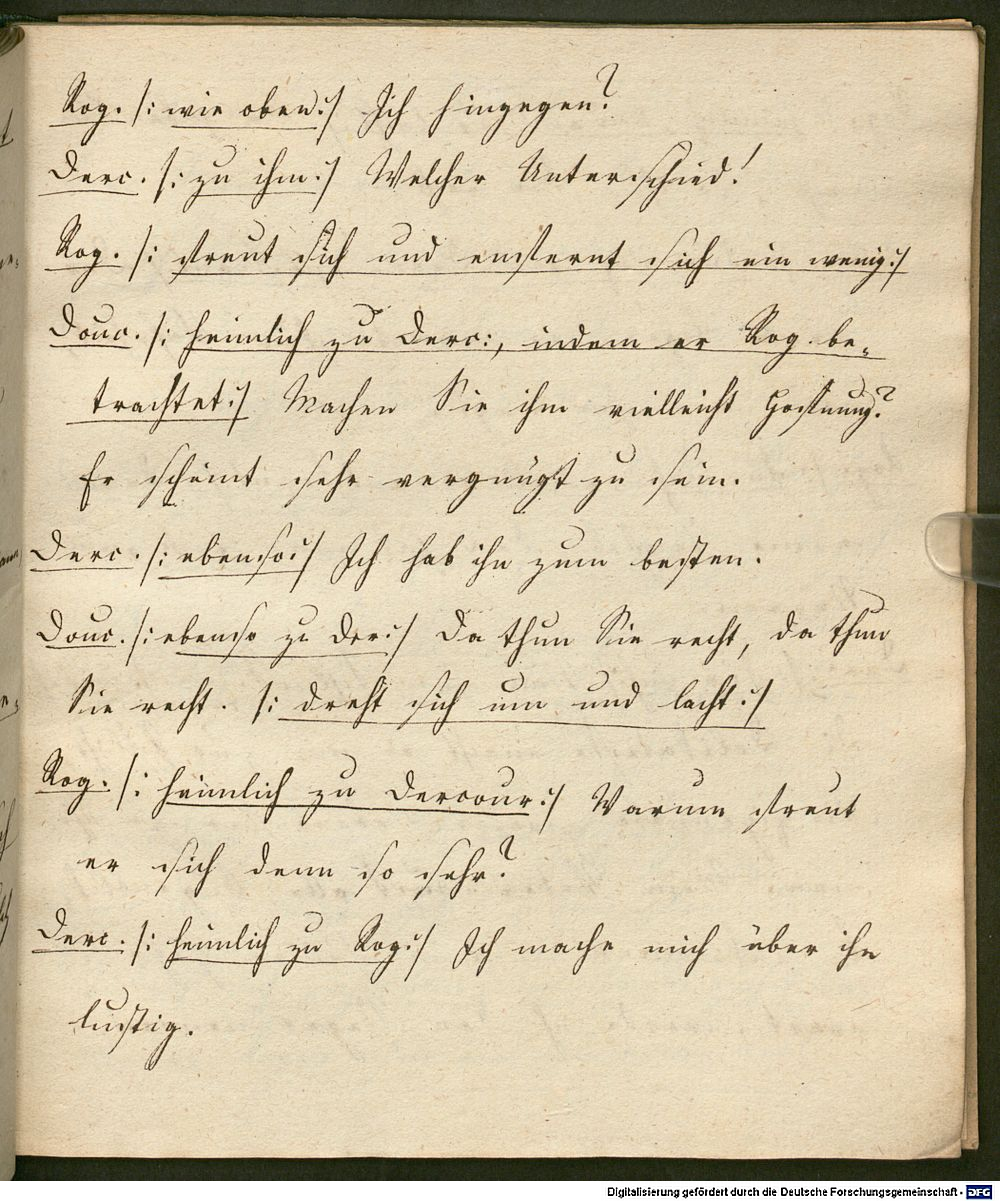 Rog. /: wie oben :/ Ich hingegen?
Derc. /: zu ihm :/ Welcher Unterschied!
Rog. /: freut sich und entfernt sich ein wenig :/
Douc. /: heimlich zu Derc:, indem er Rog. be-
trachtet :/ Machen Sie ihm vielleicht Hoffnung?
Er scheint sehr vergnügt zu sein.
Derc. /: ebenso :/ Ich hab ihn zum besten.
Douc. /: ebenso zu Der :/ Da thun Sie recht, da thun
Sie recht. /: dreht sich um und lacht :/
Rog. /: heimlich zu Dercour :/ Warum freut
er sich denn so sehr?
Derc. /: heimlich zu Rog :/ Ich mache mich über ihn
lustig.
Digitalisierung gefördert durch die Deutsche Forschungsgemeinschaft - DFG